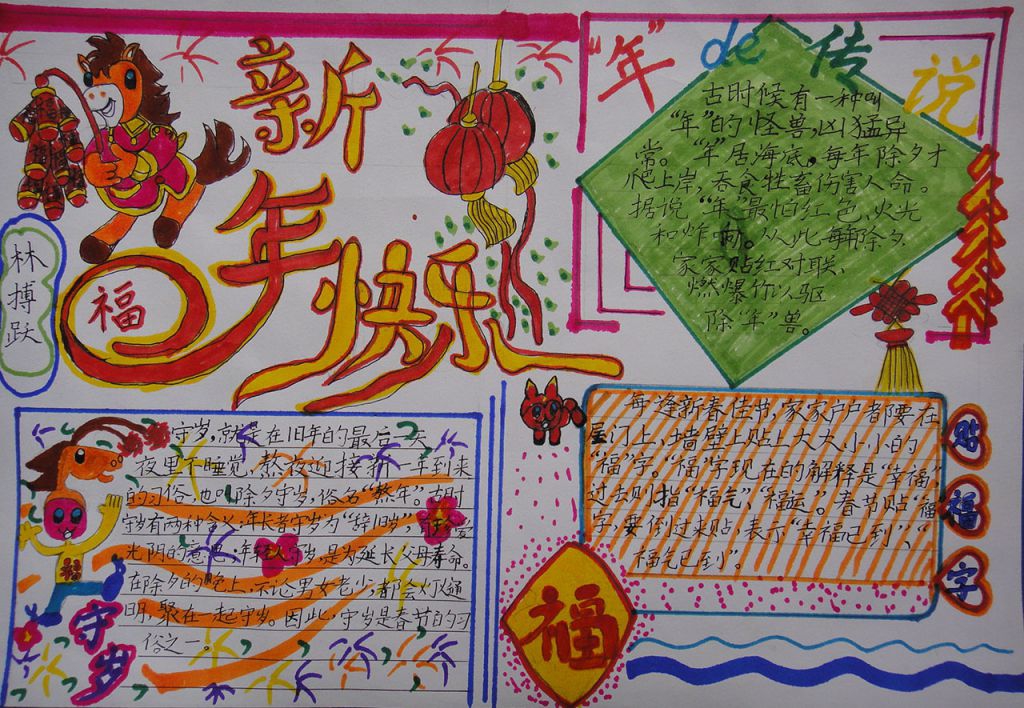 新
年快乐
福
林搏跃
"年"de传说
古时候有一种叫
"年"的怪兽,凶猛异
常。"年"居海底。每年除夕才
爬上岸,吞食牲畜伤害人命。
据说"年"最怕红色、火光
和炸响。从此每年除夕
家家贴红对联、
燃爆竹以驱
除"年"兽。
守岁,就是在旧年的最后一天
夜里不睡觉,熬夜迎接新一年到来
的习俗,也叫除夕守岁,俗名"熬年"。古时
守岁有两种含义:年长者守岁为"辞旧岁",有珍爱
光阴的意思;年轻人守岁,是为延长父母寿命。
在除夕的晚上,不论男女老少,都会灯火通
明,聚在一起守岁。因此,守岁是春节的习
俗之一。
守岁
福
每逢新春佳节,家家户户都要在
屋门上、墙壁上贴上大大小小的
"福"字。"福"字现在的解释是"幸福",
过去则指"福气"、"福运"。春节贴"福"
字,要倒过来贴,表示"幸福已到"、"
福气已到"。
贴福字
福